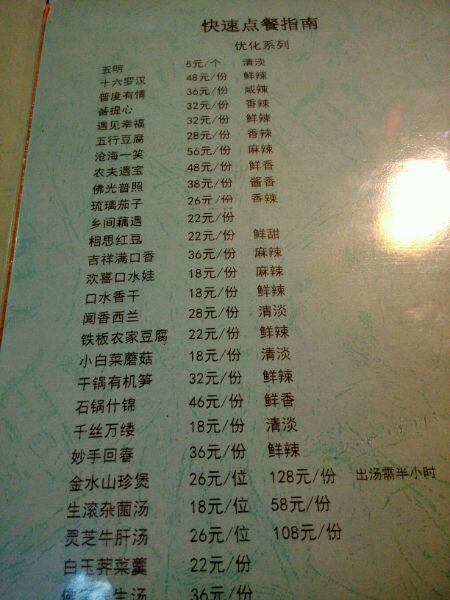 快速点餐指南
优化系列
五明 5元/个 清淡
十六罗汉 48元/份 鲜辣
普度有情 36元/份 咸辣
菩提心 32元/份 香辣
遇见幸福 32元/份 鲜辣
五行豆腐 28元/份 香辣
沧海一笑 56元/份 麻辣
农夫遇宝 48元/份 鲜香
佛光普照 38元/份 酱香
琉璃茄子 26元/份 香辣
乡间藕遇 22元/份
相思红豆 22元/份 鲜甜
吉祥满口香 36元/份 麻辣
欢喜口水娃 18元/份 麻辣
口水香干 18元/份 鲜辣
闻香西兰 28元/份 清淡
铁板农家豆腐 22元/份 鲜辣
小白菜蘑菇 18元/份 清淡
干锅有机笋 32元/份 鲜辣
石锅什锦 46元/份 鲜香
千丝万缕 18元/份 清淡
妙手回春 36元/份 鲜辣
金水山珍煲 26元/位 128元/份 出汤需半小时
生滚杂菌汤 18元/位 58元/份
灵芝牛肝汤 26元/位 108元/份
白玉荠菜羹 22元/份
生汤 36元/份